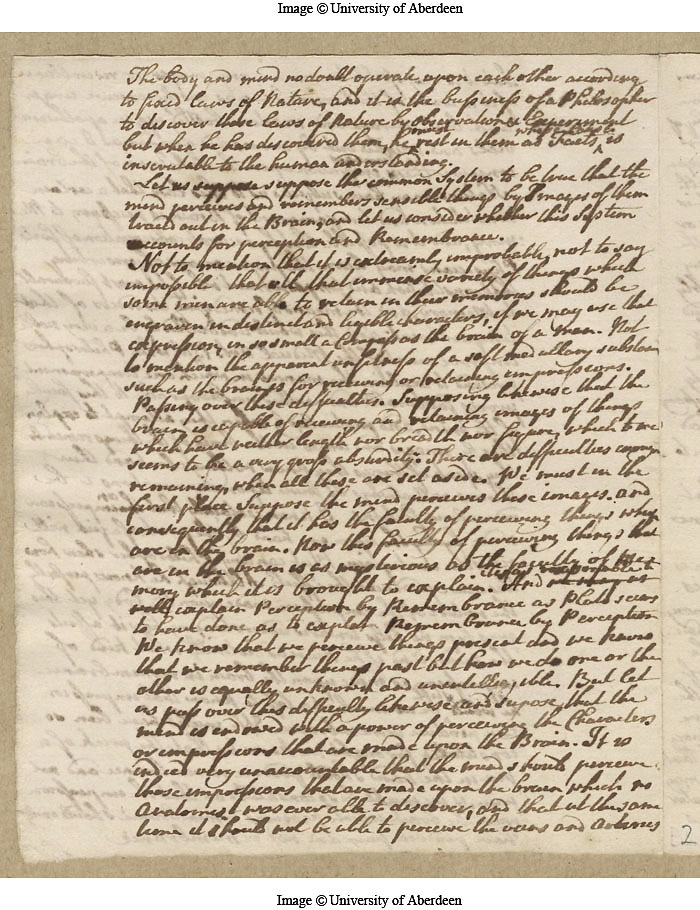 Image © University of Aberdeen
The body and mind no doubt operate upon each other according
to fixed laws of Nature, and it is the bussiness of a Philosopher
to discover these laws of Nature by observation & Experiment
but when he has discovered them, he must rest in them as Facts, is
inscrutable to the human understanding.
Let us suppose suppose the common System to be true that the
mind perceives and remembers sensible things by Images of them
traced out in the Brain, and let us consider whether this System
accounts for perception and Remembrance.
Not to mention that it is extreamly improbable, not to say
impossible that all that immense variety of things which
some men are able to retain in their memories should be
engraven in distinct and legible characters, if we may use that
expression, in so small a Compass as the brain of a man. Not
to mention the apparent unfitness of a soft medullary substan
such as the brain is for receiving or retaining impressions.
Passing over these difficulties. Supposing likewise that the
brain is capable of receiving and retaining images of things
which have neither length nor bredth nor figure, which to me
seems to be a very gross absurdity. There are difficulties
remaining, when all these are set aside. We must in the
first place suppose the mind perceives these images. and
consequently that it has the faculty of perceiving things which
are in the brain. Now this faculty of perceiving things that
are in the brain is as mysterious as the faculty of Me
mory which it is brought to explain. And
explain Perception by Remembrance as Plato seems
to have done as to explain Remembrance by Perception
We know that we perceive things present and we know
that we remember things past but how we do one or the
other is equally unknown and unintelligible. But let
us pass over this difficulty likewise and supose that the
mind is endowed with a power of perceiving the Characters
or impressions that are made upon the Brain. It is
indeed very unaccountable that the mind should perceive
those impressions that are made upon the brain which no
Anatomist was ever able to discover, and that at the same
time it should not be able to perceive the veins and arteries
2
Image © University of Aberdeen